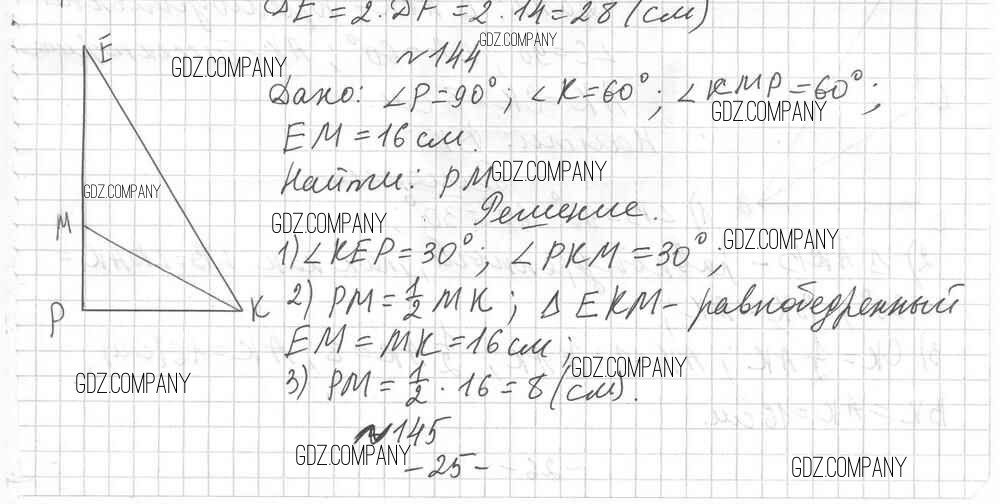 DE = 2 · DF = 2 · 14 = 28 (см)
№144
GDZ.COMPANY
E
GDZ.COMPANY
Дано: ∠P=90°; ∠K=60°; ∠KMP=60°;
GDZ.COMPANY
EM = 16 см.
Найти: PM
GDZ.COMPANY
GDZ.COMPANY
Решение.
GDZ.COMPANY
M
1) ∠KEP = 30°; ∠PKM = 30°;
GDZ.COMPANY
2) PM = 1/2 MK; Δ EKM - равнобедренный
P
K
EM = MK = 16 см;
GDZ.COMPANY
3) PM = 1/2 · 16 = 8 (см).
GDZ.COMPANY
№145
GDZ.COMPANY
- 25 -
GDZ.COMPANY